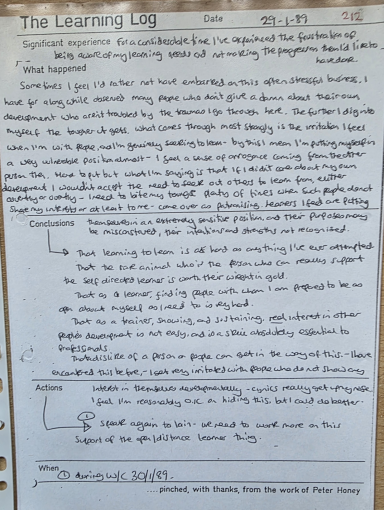 The Learning Log Date 29-1-89 212
Significant experience For a considerable time I've experienced the frustration of
being aware of my learning needs and not making the progression then I'd like to
What happened have done.
Sometimes I feel I'd rather not have embarked on this often stressful business. I
have for a long while observed many people who don't give a damn about their own
development who aren't troubled by the traumas I go through here. The further I dig into
myself the tougher it gets. What comes through most strongly is the irritation I feel
when I'm with people, and I'm genuinely seeking to learn - by this I mean I'm putting myself in
a very vulnerable position almost - I feel a sense of arrogance coming from the other
person then. Hard to put but what I'm saying is that if I didn't care about my own
development I wouldn't accept the need to seek out others to learn from either
covertly or overtly - I need to bite my tongue plenty of times when such people do not
share my interest or at least to me - come over as patronising. Learners I feel are putting
Conclusions themselves in an extremely sensitive position and their purposes may
be misconstrued, their intentions and strengths not recognised.
That learning to learn is as hard as anything I've ever attempted.
That the rare animal who is the person who can really support
the self directed learner is worth their weight in gold.
That as a learner, finding people with whom I am prepared to be as
open about myself as I need to is very hard.
That as a trainer, showing, and sustaining, real interest in other
peoples development is not easy, and is a skill absolutely essential to
professionals.
That a dislike of a person or people can get in the way of this. - I have
encountered this before, - I get very irritated with people who do not show any
Actions interest in themselves developmentally - cynics really get up my nose.
I feel I'm reasonably O.K. on hiding this, but I could do better.
1
Speak again to Iain - we need to work more on this
support of the open/distance learner thing.
When 1 during w/c 30/1/89.
....pinched, with thanks, from the work of Peter Honey